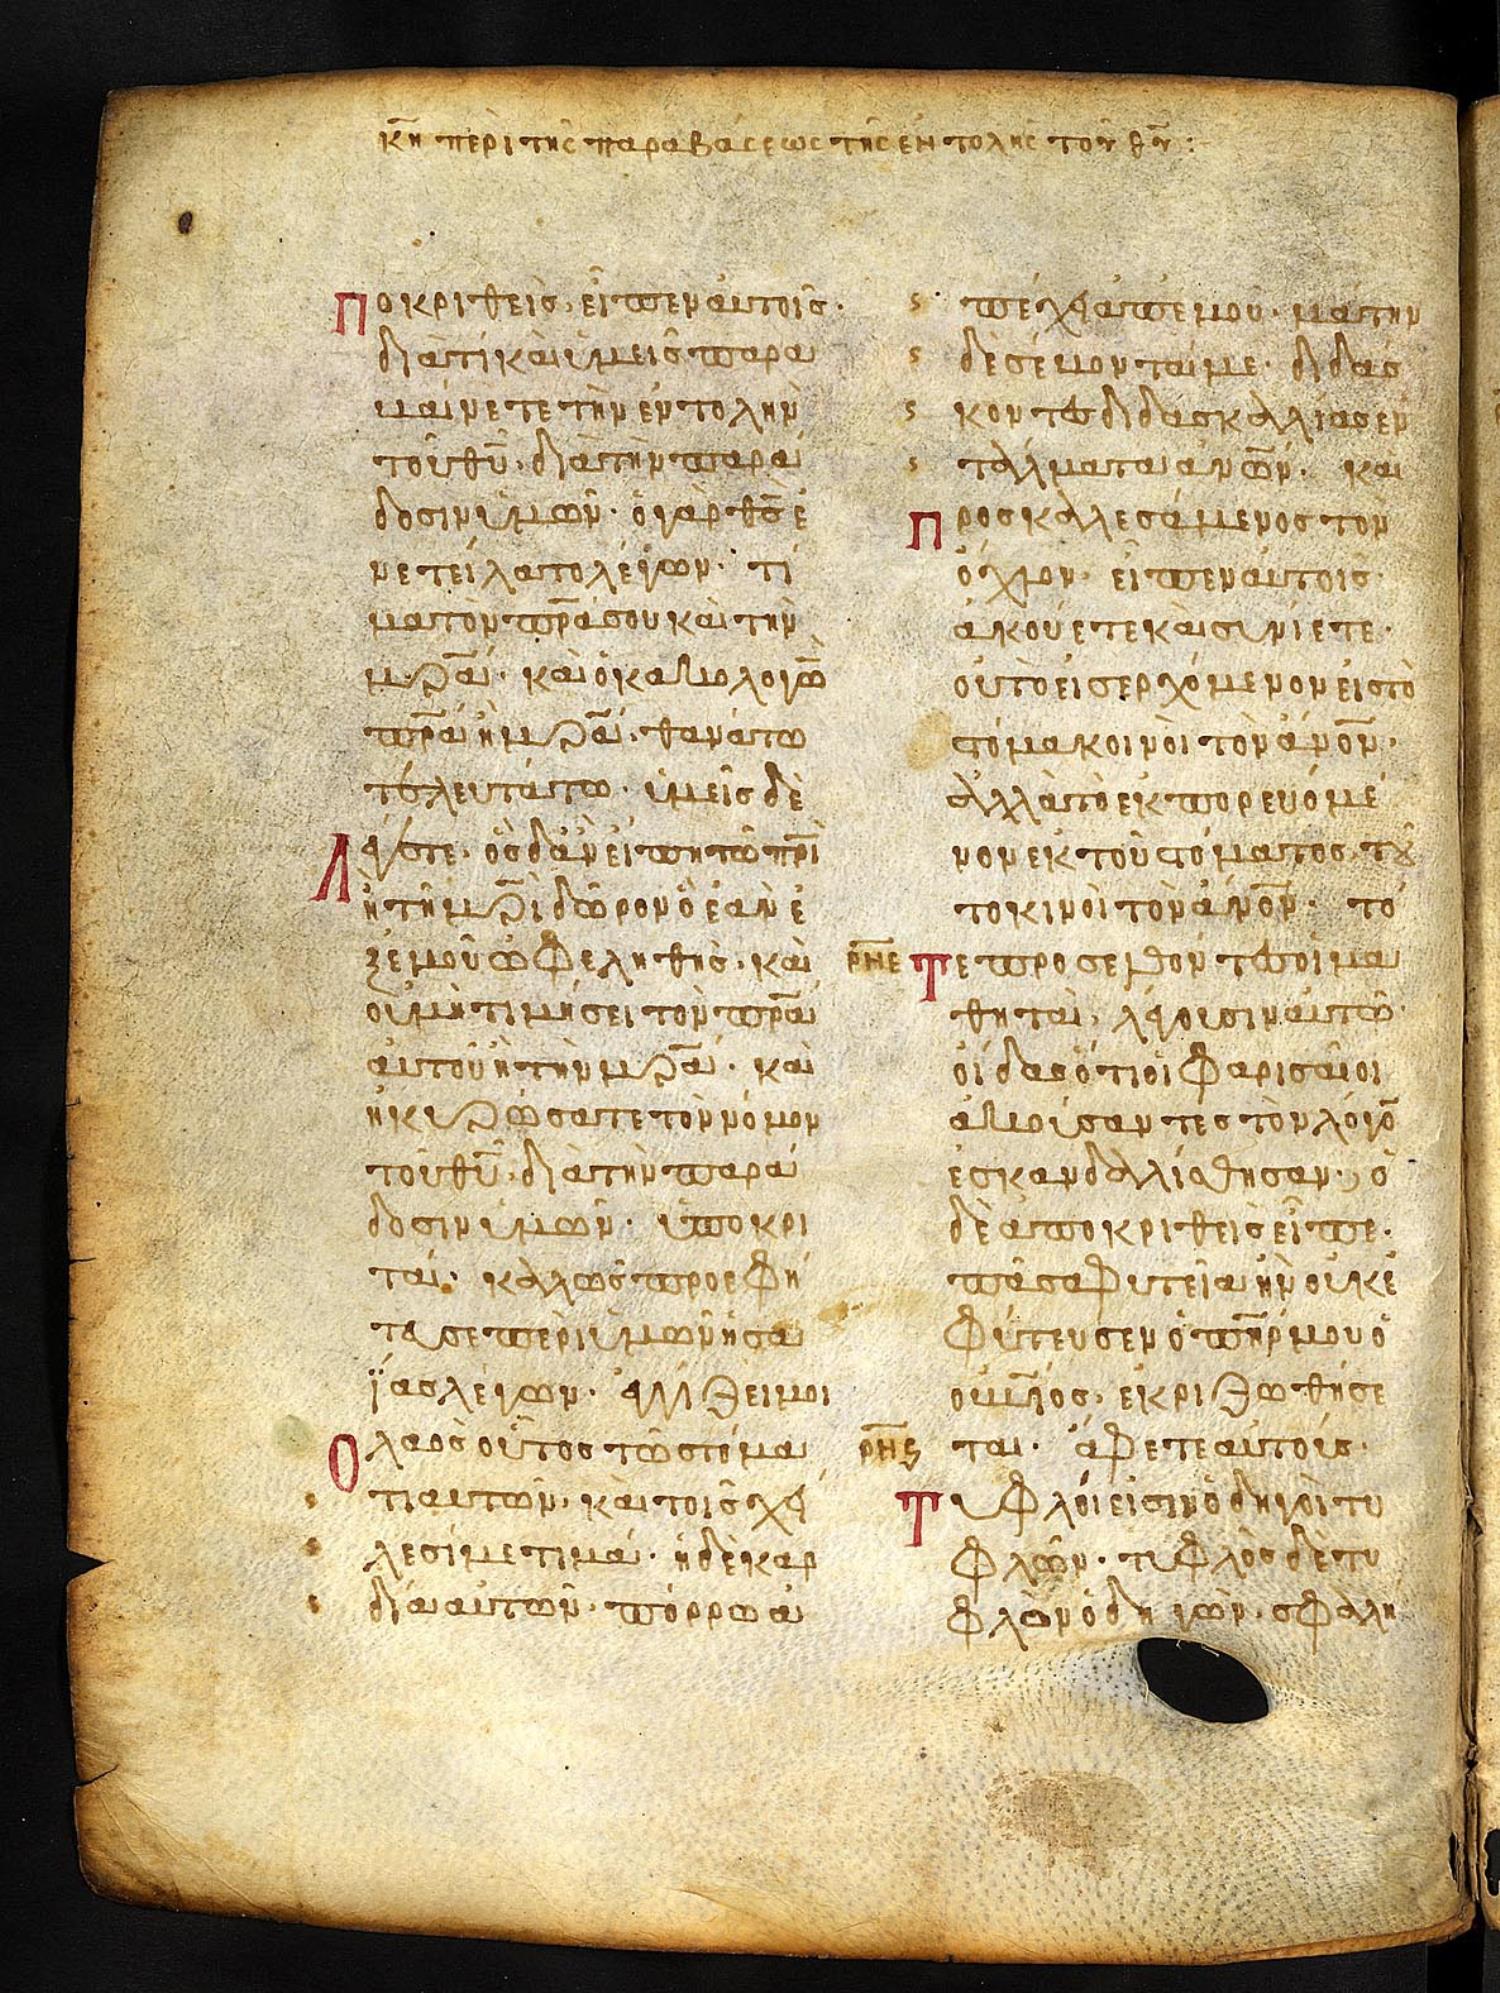 κη περὶ τῆς παραβάσεως τῆς ἐντολῆς τοῦ θυ :
Ποκριθεὶς, εἶπεν αὐτοῖς·
διατί καὶ ὑμεῖς παρα
βαίνετε τὴν ἐντολὴν
τοῦ θυ, διὰ τὴν παρά
δοσιν ὑμῶν· ὁ γὰρ θς ἐ
νετείλατο λέγων· τί
μα τὸν πρα σου καὶ τὴν
μρα· καὶ ὁ κακολογῶ
πρα ἢ μρα, θανάτω
τελευτάτω· ὑμεῖς δὲ
Λέγετε, ὃς δ' ἂν εἴπη τῶ πρι
ἢ τῆ μρι δῶρον ὃ ἐὰν ἐ
ξ ἐμοῦ ὠφεληθῆς, καὶ
οὐ μὴ τιμήσει τὸν πρα
αὐτοῦ ἢ τὴν μρα· καὶ
ἠκυρώσατε τὸν νόμον
τοῦ θυ, διὰ τὴν παρά
δοσιν ὑμῶν· ὑποκρι
ταί· καλῶς προεφή
τευσε περὶ ὑμῶν ἠσα
ΐας λέγων· ἐγγίζει μοι
Ο λαὸς οὗτος τῶ στόμα
τι αὐτῶν, καὶ τοῖς χεί
λεσί με τιμᾶ· ἡ δὲ καρ
δία αὐτῶν· πόρρω ἀ
πέχει ἀπ' ἐμοῦ· μάτην
δὲ σέβονταί με· διδάσ
κοντες διδασκαλίας ἐν
τάλματα ανων· καὶ
Προσκαλεσάμενος τὸν
ὄχλον· εἶπεν αὐτοῖς·
ἀκούετε καὶ συνίετε·
οὐ τὸ εἰσερχόμενον εἰς τὸ
στόμα κοινοὶ τὸν ανον·
ἀλλὰ τὸ ἐκπορευόμε
νον ἐκ τοῦ στόματος, τοῦ
το κινοὶ τὸν ανον· τό
ρνε Τε προσελθόντες οἱ μα
θηταὶ, λέγουσιν αὐτῶ·
οἶδας ὅτι οἱ φαρισαῖοι
ἀκούσαντες τὸν λόγο
ἐσκανδαλίσθησαν· ὁ
δὲ ἀποκριθεὶς εἶπε·
πᾶσα φυτεία ἣν οὐκ ἐ
φύτευσεν ὁ πηρ μου ὁ
οὐνιος, ἐκριζωθήσε
ρνς ται· ἄφετε αὐτούς·
Τυφλοί εἰσιν ὁδηγοὶ τυ
φλῶν· τυφλὸς δὲ τυ
φλὸν ὁδηγῶν· σφαλη